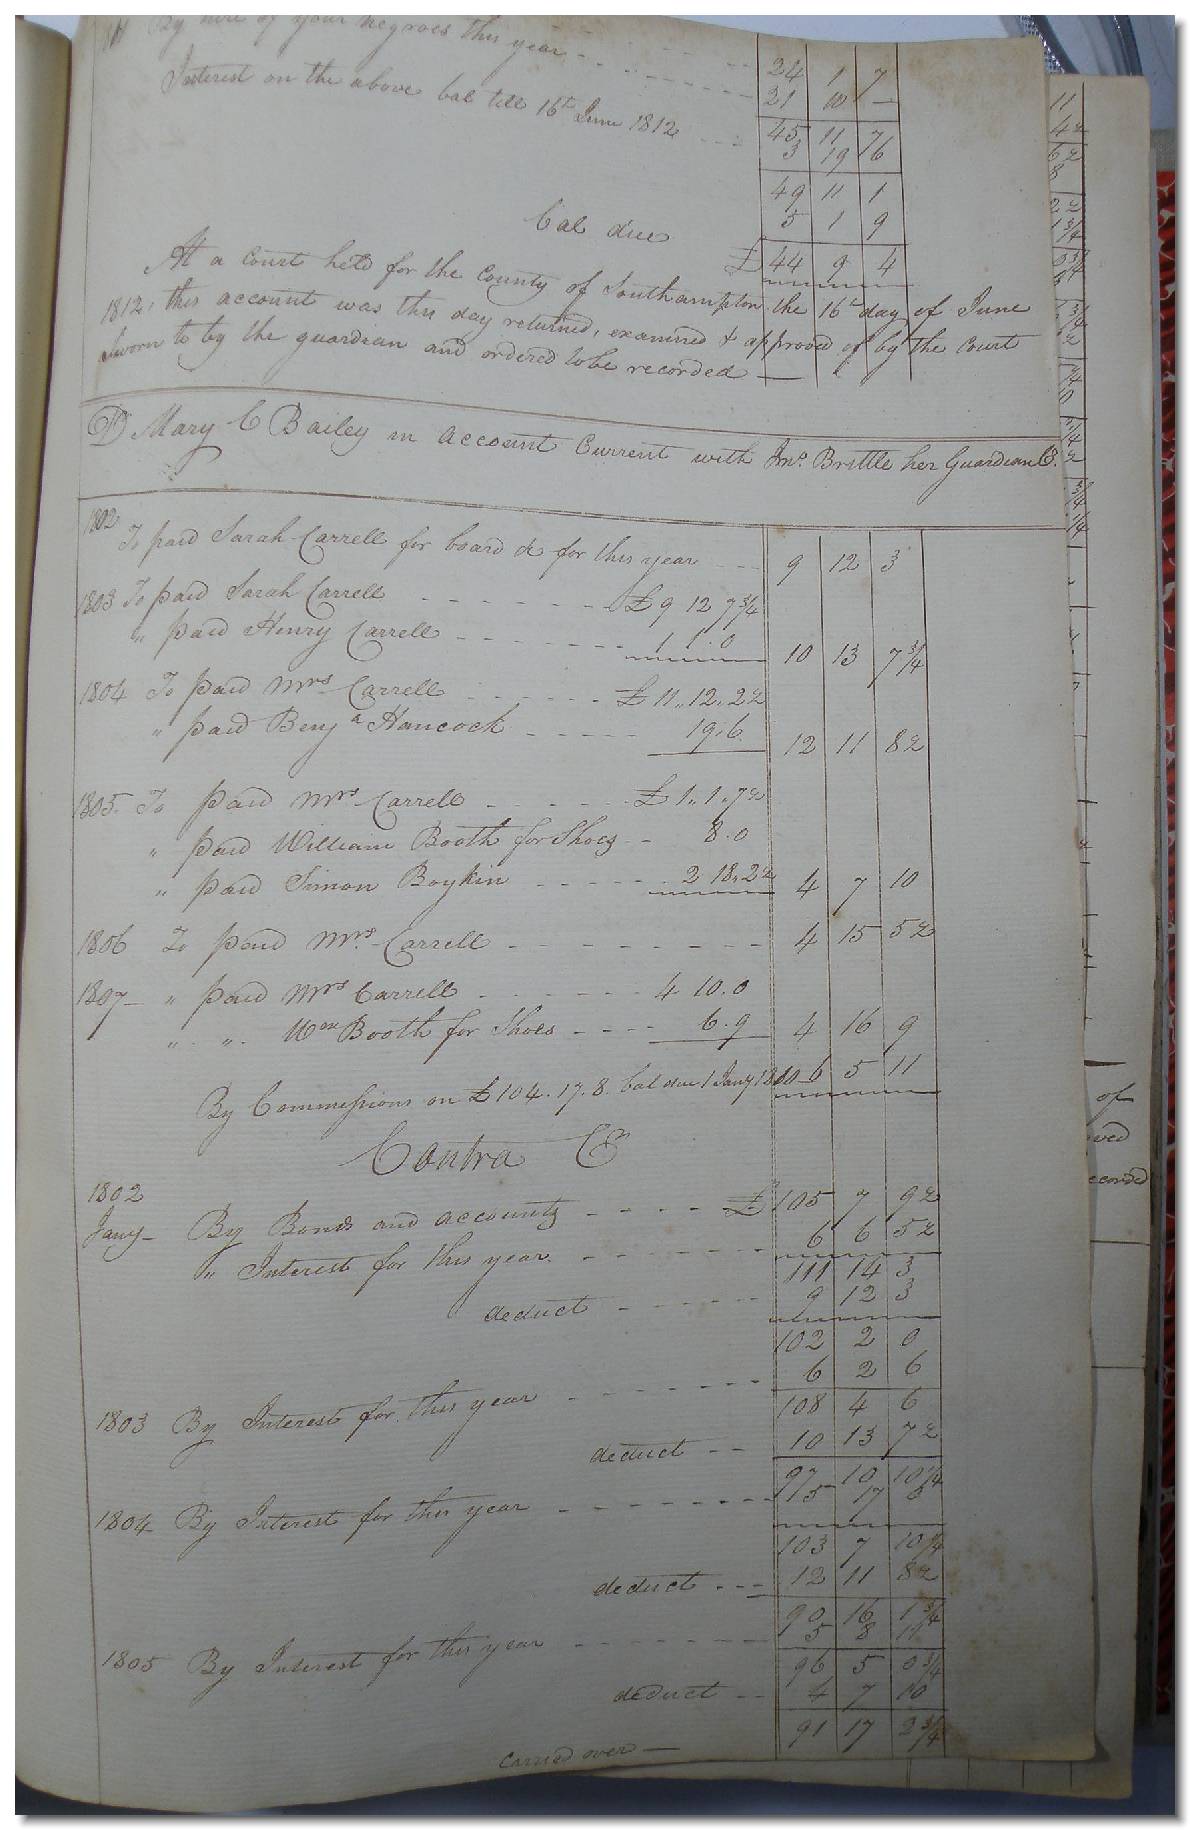 By hire of your negroes this year - - - 24 1 7
21 10 —
45 11 7
Interest on the above bal till 16th June 1812 - - - 3 19 6
49 11 1
5 1 9
bal due £ 44 9 4
At a court held for the County of Southampton the 16th day of June
1812, this account was this day returned, examined & approved of by the Court
sworn to by the guardian and ordered to be recorded —
Dr Mary C Bailey in account Current with Jno. Brittle her Guardian Cr.
1802
To paid Sarah Carrell for board &c for this year - - - 9 12 3
1803 To paid Sarah Carrell - - - £ 9 12 7 3/4
" paid Henry Carrell - - - 1 1 0 10 13 7 3/4
1804 To paid Mrs Carrell - - - £ 11 " 12 " 2 2
" paid Benja Hancock - - - 19 . 6 12 11 8 2
1805 To paid Mrs Carrell - - - £ 1 " 1 " 7 2
" paid William Booth for Shoes - - 8 . 0
" paid Simon Boykin - - - 2 18 " 2 2 4 7 10
1806 To paid Mrs Carrell - - - 4 15 5 2
1807 - " paid Mrs Carrell - - - 4 10 . 0
" " Wm Booth for Shoes - - - 6 . 9 4 16 9
By Commissions on £ 104 . 17 . 8 bal due 1 Jany 6 5 11
Contra Cr
1802
Jany - By Bonds and accounts - - - £ 105 7 9 2
" Interest for this year - - - 6 6 5 2
111 14 3
deduct - - - 9 12 3
102 2 0
1803 By Interest for this year - - - 6 2 6
108 4 6
deduct - - 10 13 7 2
97 10 10 1/4
1804 By Interest for this year - - - 5 17 0
103 7 10 1/4
deduct - - - 12 11 8 2
90 16 1 3/4
1805 By Interest for this year - - - 5 8 11
96 5 0 3/4
deduct - - 4 7 10
91 17 2 3/4
Carried over —
of
recorded